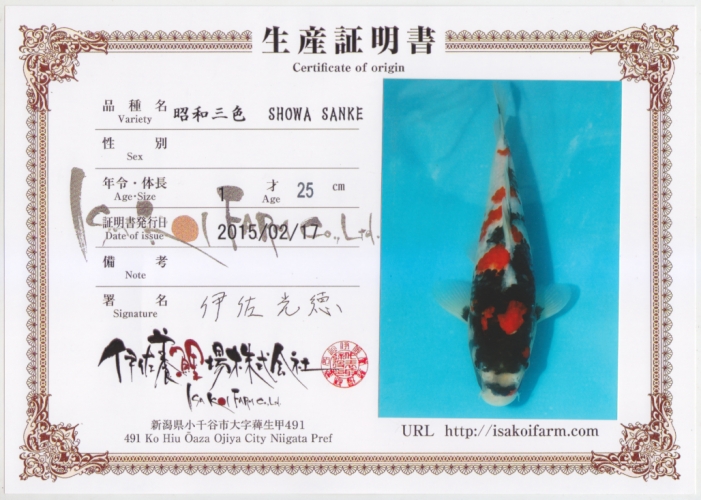 生産証明書
Certificate of origin
品種名 昭和三色 SHOWA SANKE
Variety
性別
Sex
年令・体長 1 才 25 cm
Age・Size Age
ISA KOI FARM Co., Ltd.
証明書発行日 2015/02/17
Date of issue
備考
Note
署名 伊佐光徳
Signature
伊佐養鯉場株式会社
ISA KOI FARM Co., Ltd.
新潟県小千谷市大字薭生甲491
491 Ko Hiu Ōaza Ojiya City Niigata Pref
URL http://isakoifarm.com